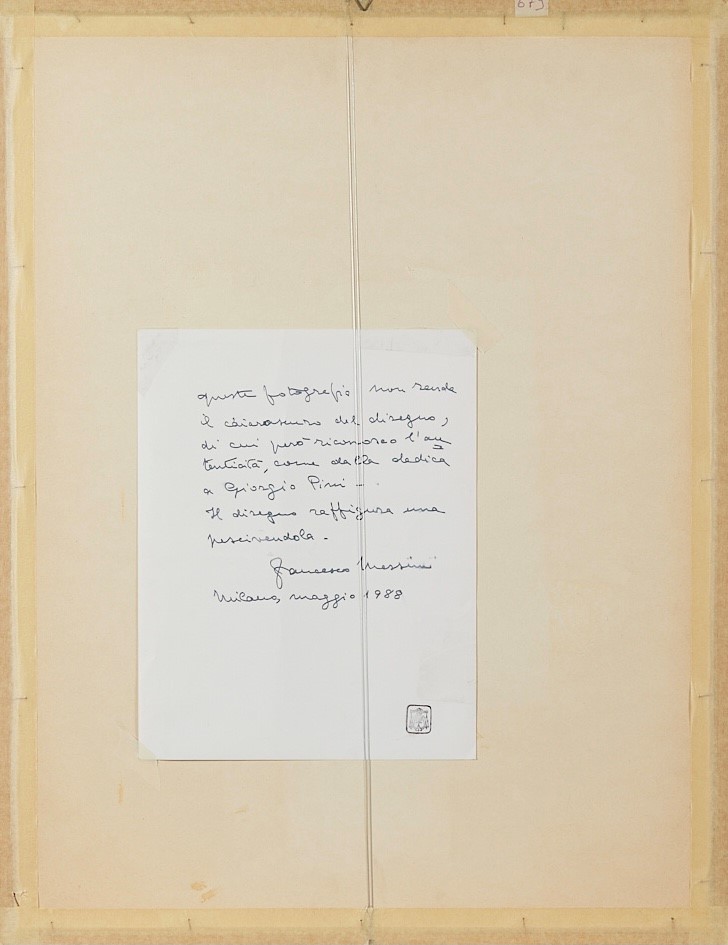 questa fotografia non rende
il chiaroscuro del disegno,
di cui però riconosco l'au
tenticità, come dalla dedica
a Giorgio Pini -
Il disegno raffigura una
pescivendola -
Francesco Messina
Milano, maggio 1988